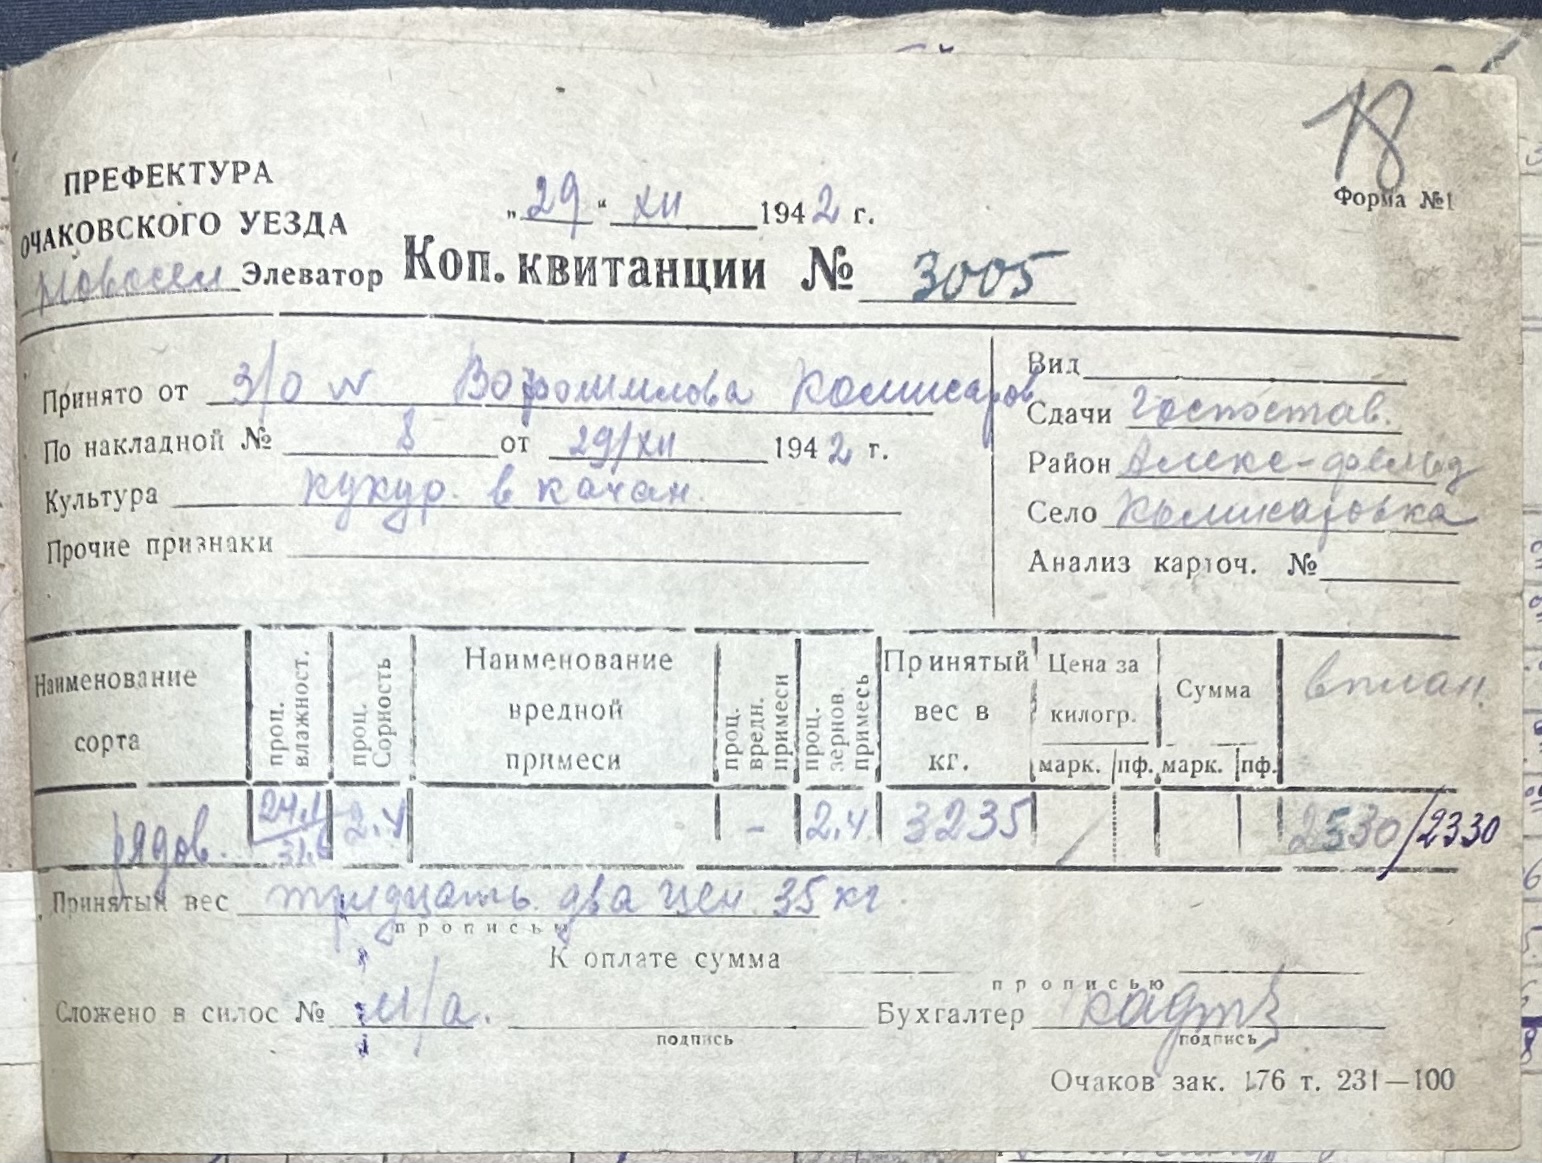 18
Форма №1
ПРЕФЕКТУРА
ОЧАКОВСКОГО УЕЗДА
Новосел Элеватор
„29“ XII 1942 г.
Коп. квитанции № 3005
Принято от З/О Ворошилова Комисаров
По накладной № 8 от 29/XII 1942 г.
Культура кукур. в качан.
Прочие признаки
Вид
Сдачи Госпостав.
Район Алекс-фельд
Село Комисаровка
Анализ карточ. №
Наименование сорта
проц. влажност.
проц. Сорность
Наименование вредной примеси
проц. вредн. примеси
проц. зернов. примесь
Принятый вес в кг.
Цена за килогр.
марк. пф.
Сумма
марк. пф.
в план.
рядов. 24.1 2.4 - 2.4 3235 2530/2330
Принятый вес тридцать два цен 35 кг
прописью
К оплате сумма
прописью
Сложено в силос № м/а.
подпись
Бухгалтер
подпись
Очаков зак. 176 т. 231—100